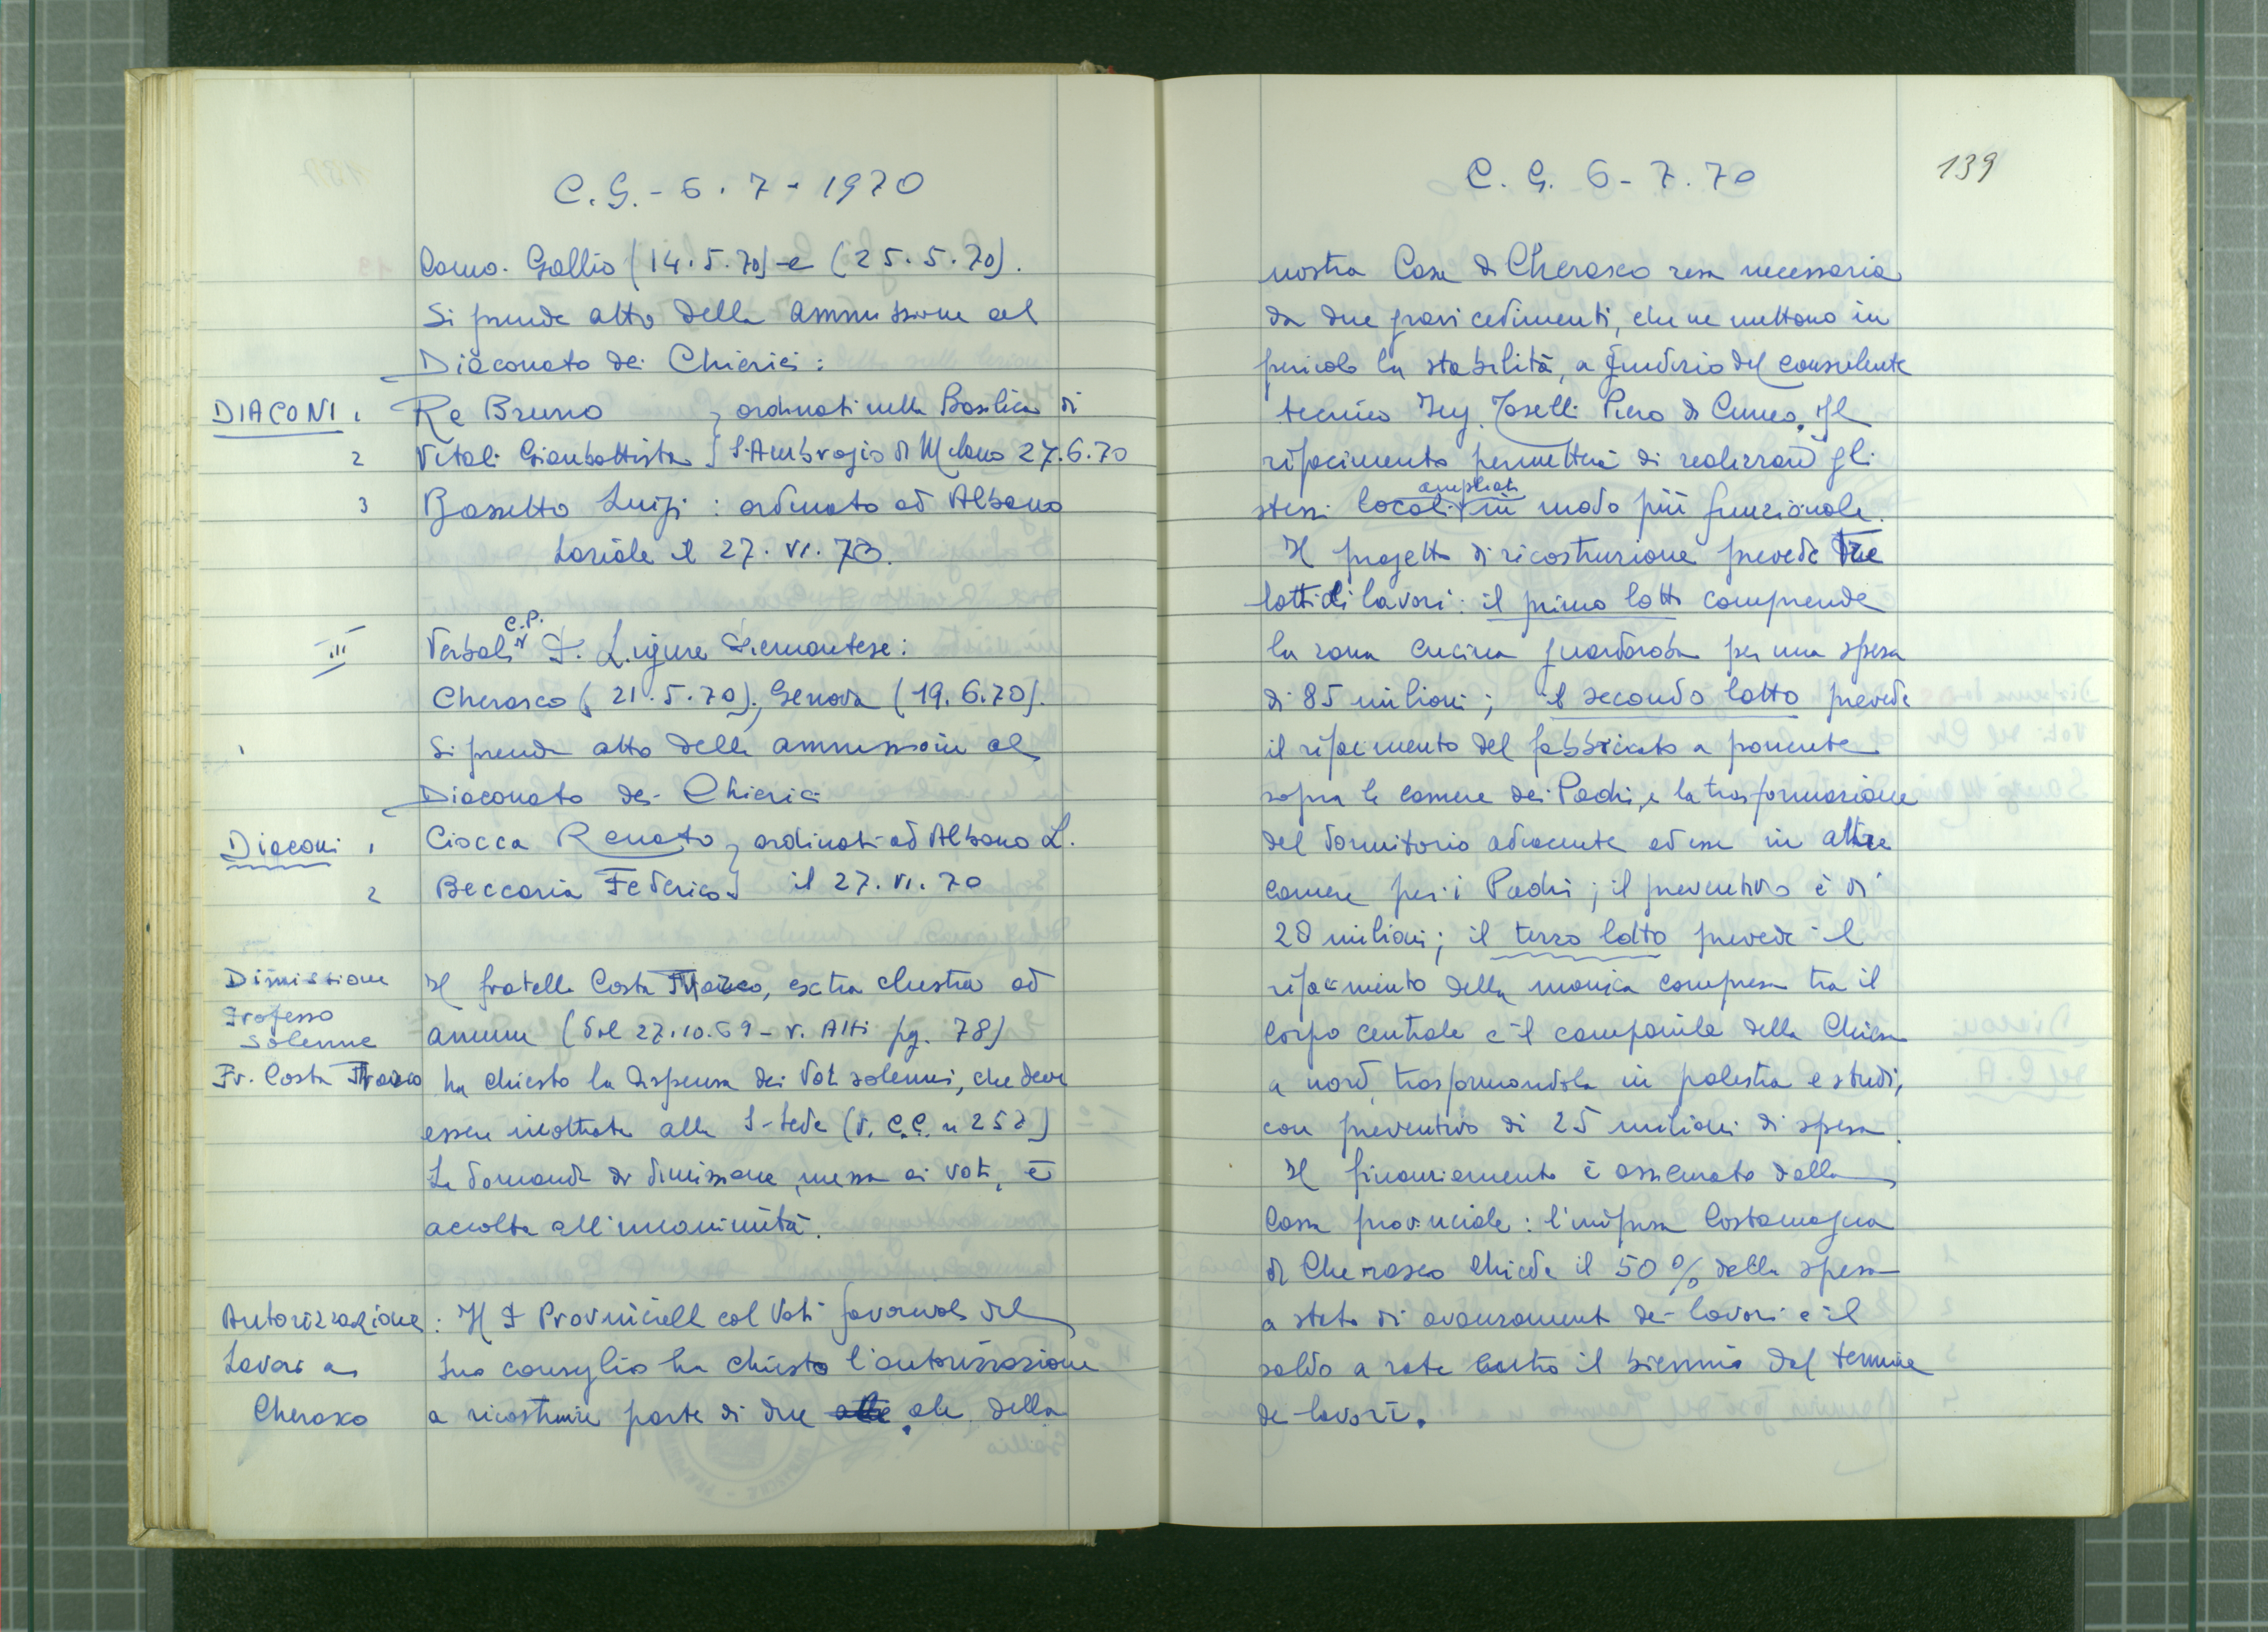 C.G. - 6.7-1970
Como. Gallio (14.5.70) e (25.5.70).
Si prende atto della ammissione al
Diaconato dei Chierici:
DIACONI 1 Re Bruno } ordinati nella Basilica di
2 Vitali Gianbattista } S. Ambrogio di Milano 27.6.70
3 Bassetto Luigi : ordinato ad Albano
Laziale il 27. VI. 70.
III Verbali C.P. P. Ligure Piemontese:
Cherasco (21.5.70), Genova (19.6.70).
Si prende atto della ammissione al
Diaconato dei Chierici
Diaconi 1 Ciocca Renato } ordinati ad Albano L.
2 Beccaria Federico } il 27. VI. 70
Dimissione Il fratello Costa, extra claustra ad
Professo
solenne annum (dal 27.10.69 - v. Atti pg. 78)
Fr. Costa ha chiesto la dispensa dei Voti solenni, che deve
essere inoltrata alla S. Sede (v. C.C. n 252)
La domanda di dimissione, messa ai voti, è
accolta all'unanimità.
Autorizzazione : Il P Provinciale col Voti favorevole del
Lavori a suo consiglio ha chiesto l'autorizzazione
Cherasco a ricostruire parte di due ale della
C. G. 6-7.70
139
nostra Casa di Cherasco resa necessaria
da due gravi cedimenti, che ne mettono in
pericolo la stabilità, a giudizio del consulente
tecnico Ing. Toselli Piero di Cuneo. Il
rifacimento permetterà di realizzare gli
stessi locali ampliati in modo più funzionale.
Il progetto di ricostruzione prevede tre
lotti di lavori: il primo lotto comprende
la zona cucina guardaroba per una spesa
di 85 milioni; il secondo lotto prevede
il rifacimento del fabbricato a ponente
sopra le camere dei Padri, e la trasformazione
del dormitorio adiacente ad esse in altre
camere per i Padri; il preventivo è di
20 milioni; il terzo lotto prevede il
rifacimento della manica compresa tra il
corpo centrale e il campanile della Chiesa
a nord, trasformandola in palestra e studi,
con preventivo di 25 milioni di spesa.
Il finanziamento è assicurato dalla
Cassa provinciale: l'impresa Costamagna
di Cherasco chiede il 50% della spesa
a stato di avanzamento dei lavori e il
saldo a rate entro il biennio dal termine
dei lavori.